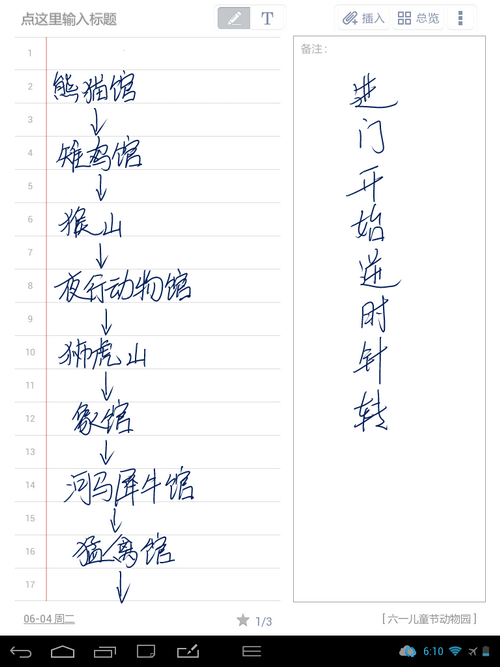 点这里输入标题
T
插入
总览
1
2 熊猫馆
3 ↓
4 雉鸡馆
5 ↓
6 猴山
7 ↓
8 夜行动物馆
9 ↓
10 狮虎山
11 ↓
12 象馆
13 ↓
14 河马犀牛馆
15 ↓
16 猛禽馆
17 ↓
06-04 周二
1/3
备注:
进门开始逆时针转
[六一儿童节动物园]
6:10